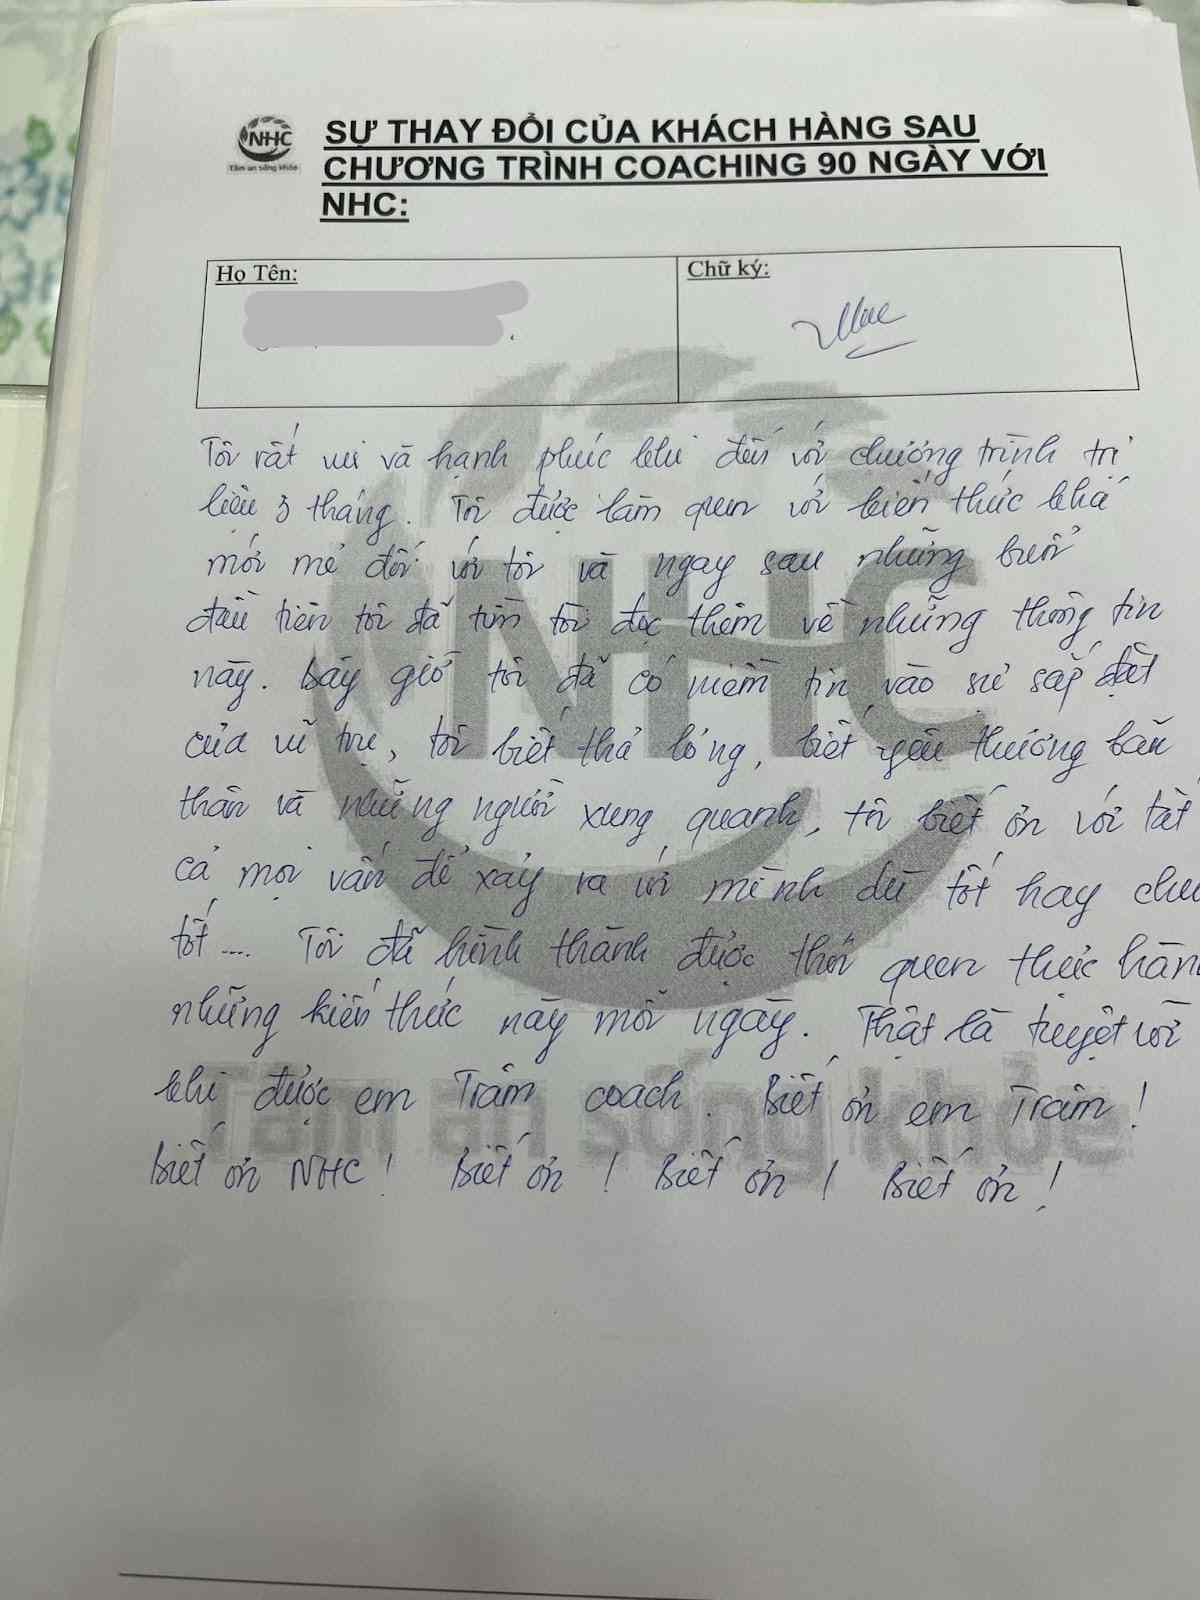 NHC
Tâm an sống khỏe
SỰ THAY ĐỔI CỦA KHÁCH HÀNG SAU
CHƯƠNG TRÌNH COACHING 90 NGÀY VỚI
NHC:
Họ Tên:
Chữ ký:
Tôi rất vui và hạnh phúc khi đến với chương trình trị
liệu 3 tháng. Tôi được làm quen với kiến thức khá
mới mẻ đối với tôi và ngay sau những buổi
đầu tiên tôi đã tìm tòi đọc thêm về những thông tin
này. Bây giờ tôi đã có niềm tin vào sự sắp đặt
của vũ trụ, tôi biết thả lỏng, biết yêu thương bản
thân và những người xung quanh, tôi biết ơn với tất
cả mọi vấn đề xảy ra với mình dù tốt hay chưa
tốt .... Tôi đã hình thành được thói quen thực hàn
những kiến thức này mỗi ngày. Thật là tuyệt vời
khi được em Trâm coach. Biết ơn em Trâm!
Biết ơn NHC! Biết ơn! Biết ơn! Biết ơn!
NHC
Tâm an sống khỏe